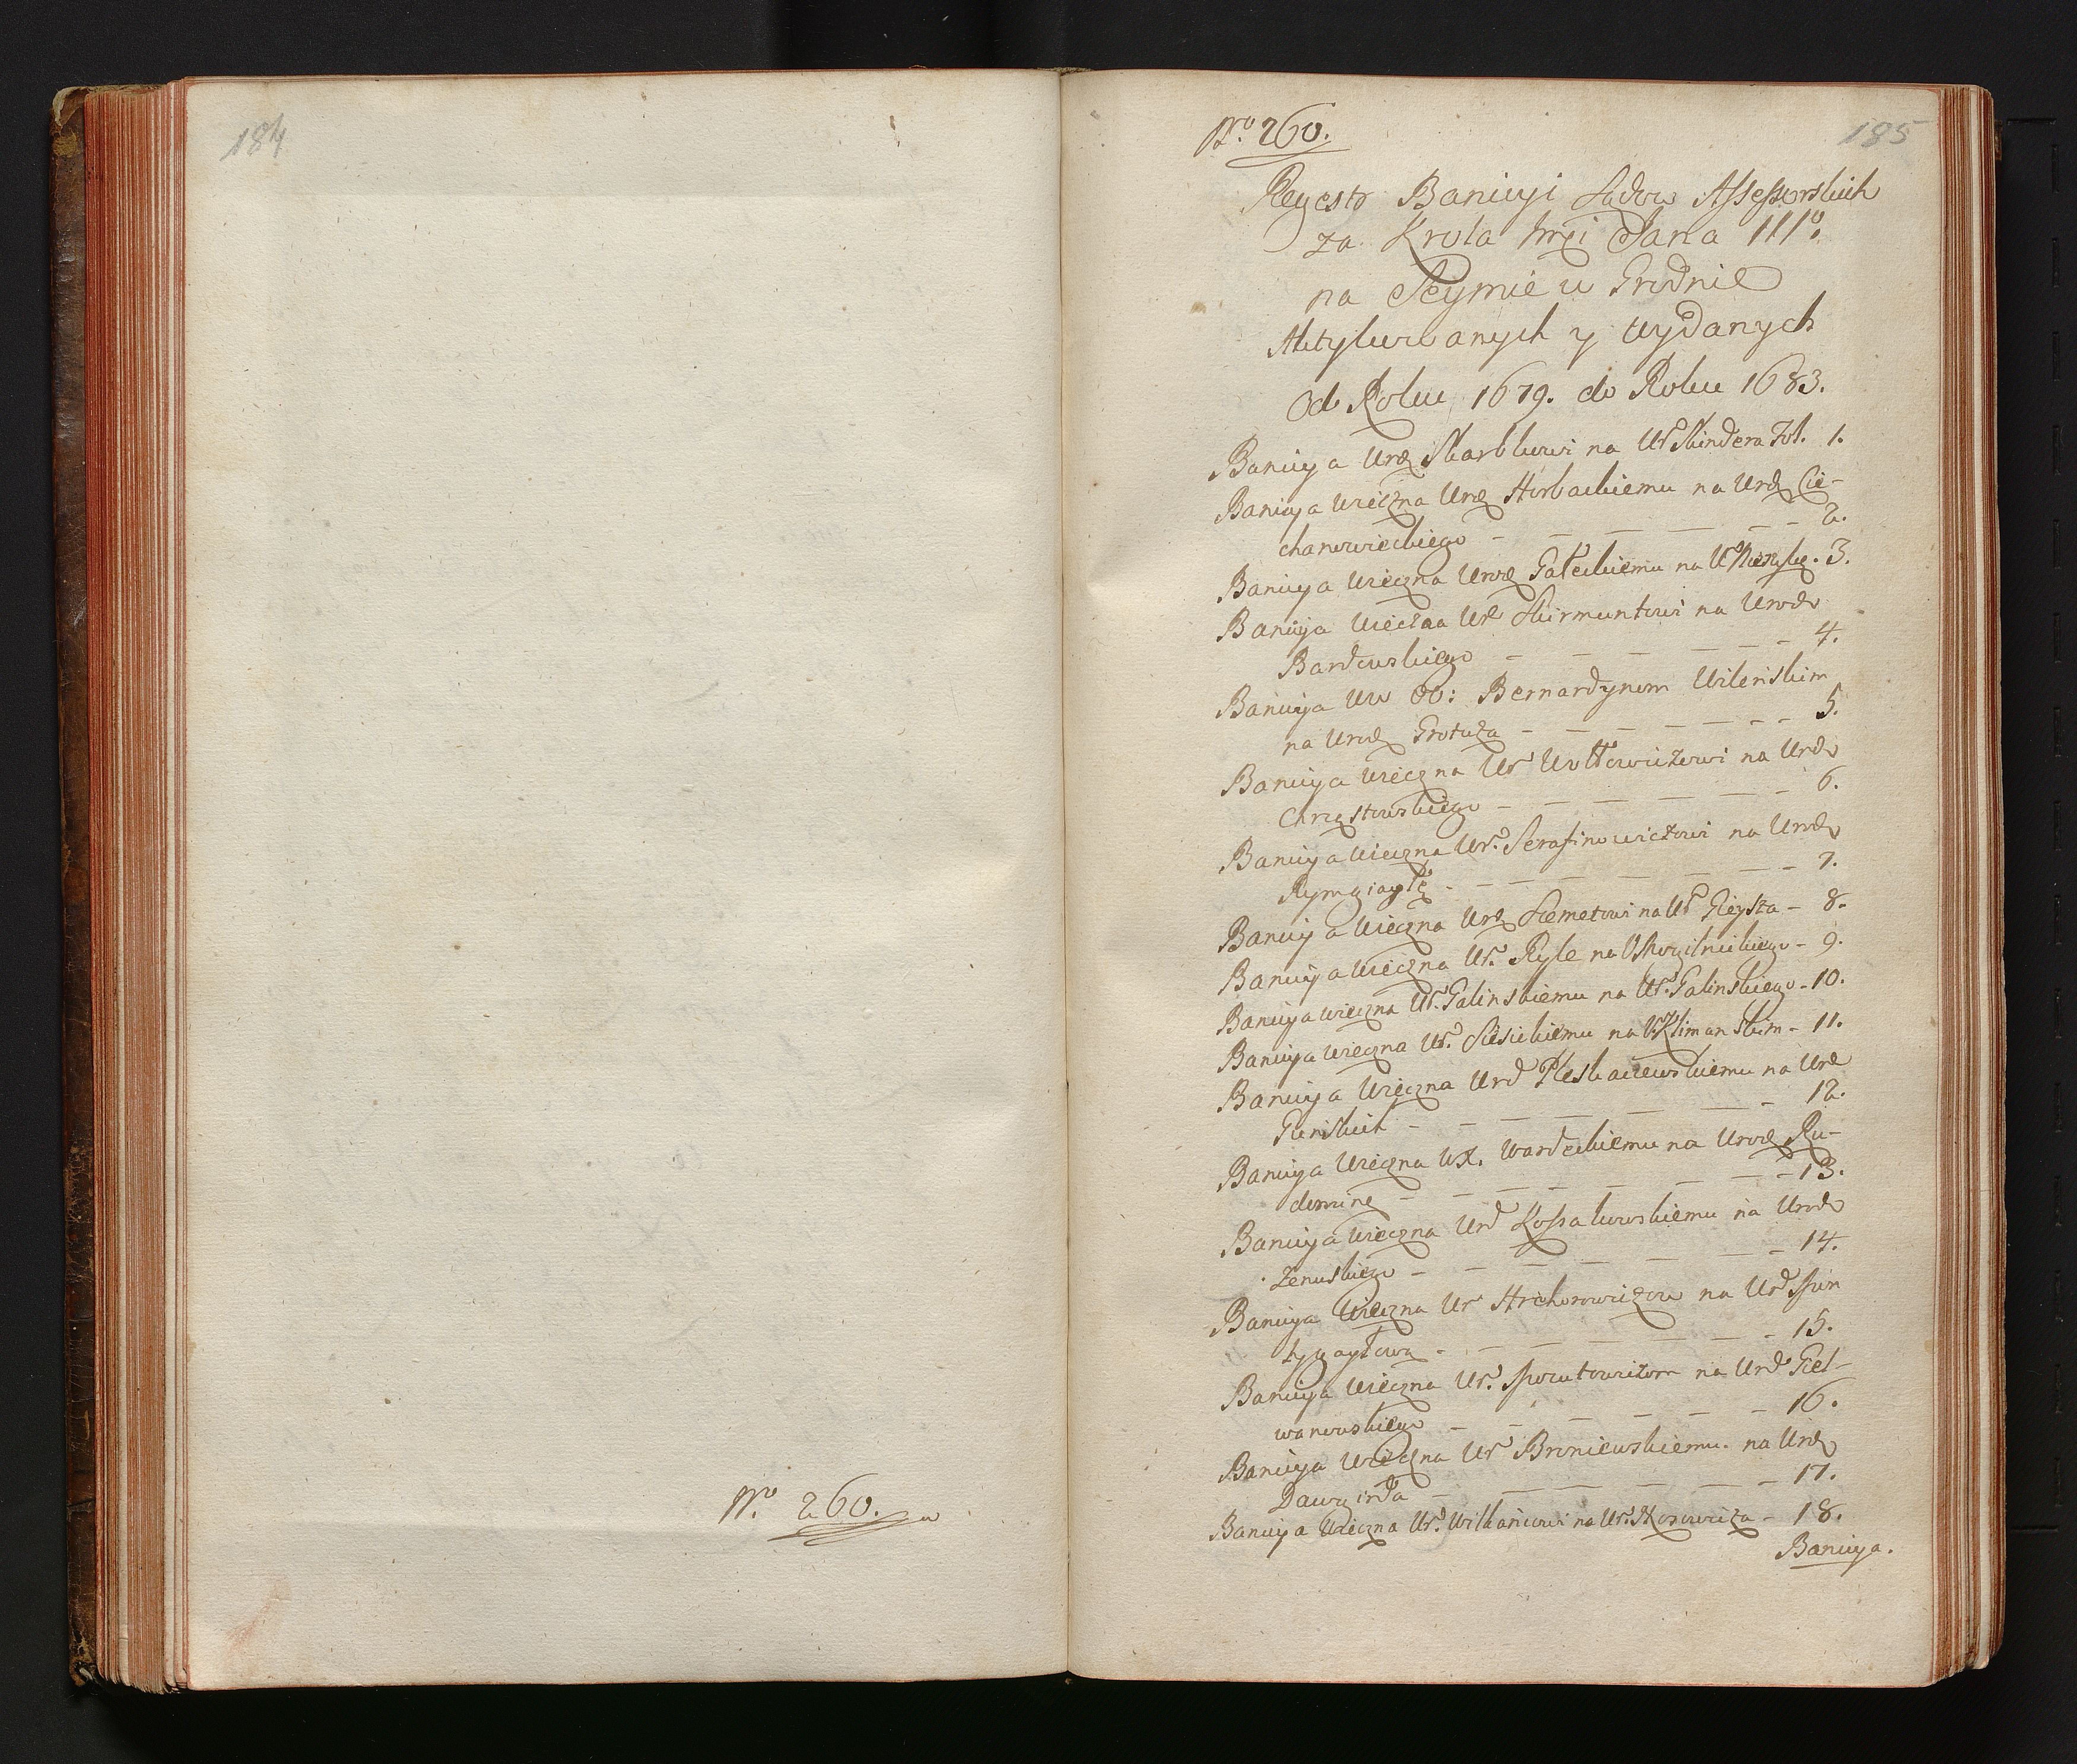 184
No 260.
185
No 260.
Regestr Banicyi Sądow Assessorskich
za Krola Jmci Jana IIIo.
na Seymie w Grodnie
Aktykowanych y wydanych
Od Roku 1679. do Roku 1683.
Banicya Urodz Skarbkowi na Ur Skindera Fol. 1.
Banicya wieczna Urodz Horbackiemu na Urodz Cie-
chanowieckiego - 2.
Banicya wieczna Urodz Gałeckiemu na Ur - 3.
Banicya wieczna Ur Skirmuntowi na Urodz
Bardowskiego - 4.
Banicya Ww OO: Bernardynom Wileńskim
na Urodz Grotuza - 5.
Banicya wieczna Ur Wołłowiczowi na Urodz
Chrząstowskiego - 6.
Banicya wieczna Ur. Serafinowiczowi na Urodz
Rymgiayłę - 7.
Banicya wieczna Urodz Szemetowi na Ur Gieysza - 8.
Banicya wieczna Ur. Ryle na - 9.
Banicya wieczna Ur. Galinskiemu na Ur. Galinskiego - 10.
Banicya wieczna Ur. Siesickiemu na Ur Klimanskim - 11.
Banicya wieczna Urod Pleskaczewskiemu na Urod
- 12.
Banicya wieczna WX. Wardeckiemu na Urodz Ru-
dominę - 13.
Banicya wieczna Urod Kossakowskiemu na Urodz
Zenuskiego - 14.
Banicya wieczna Ur na Urod Pun
tygayłową - 15.
Banicya wieczna Ur. na Urod Giel-
wanowskiego - 16.
Banicya wieczna Ur Broniewskiemu na Urodz
Dawgirda - 17.
Banicya wieczna Ur. Wilkańcowi na Ur. - 18.
Banicya.